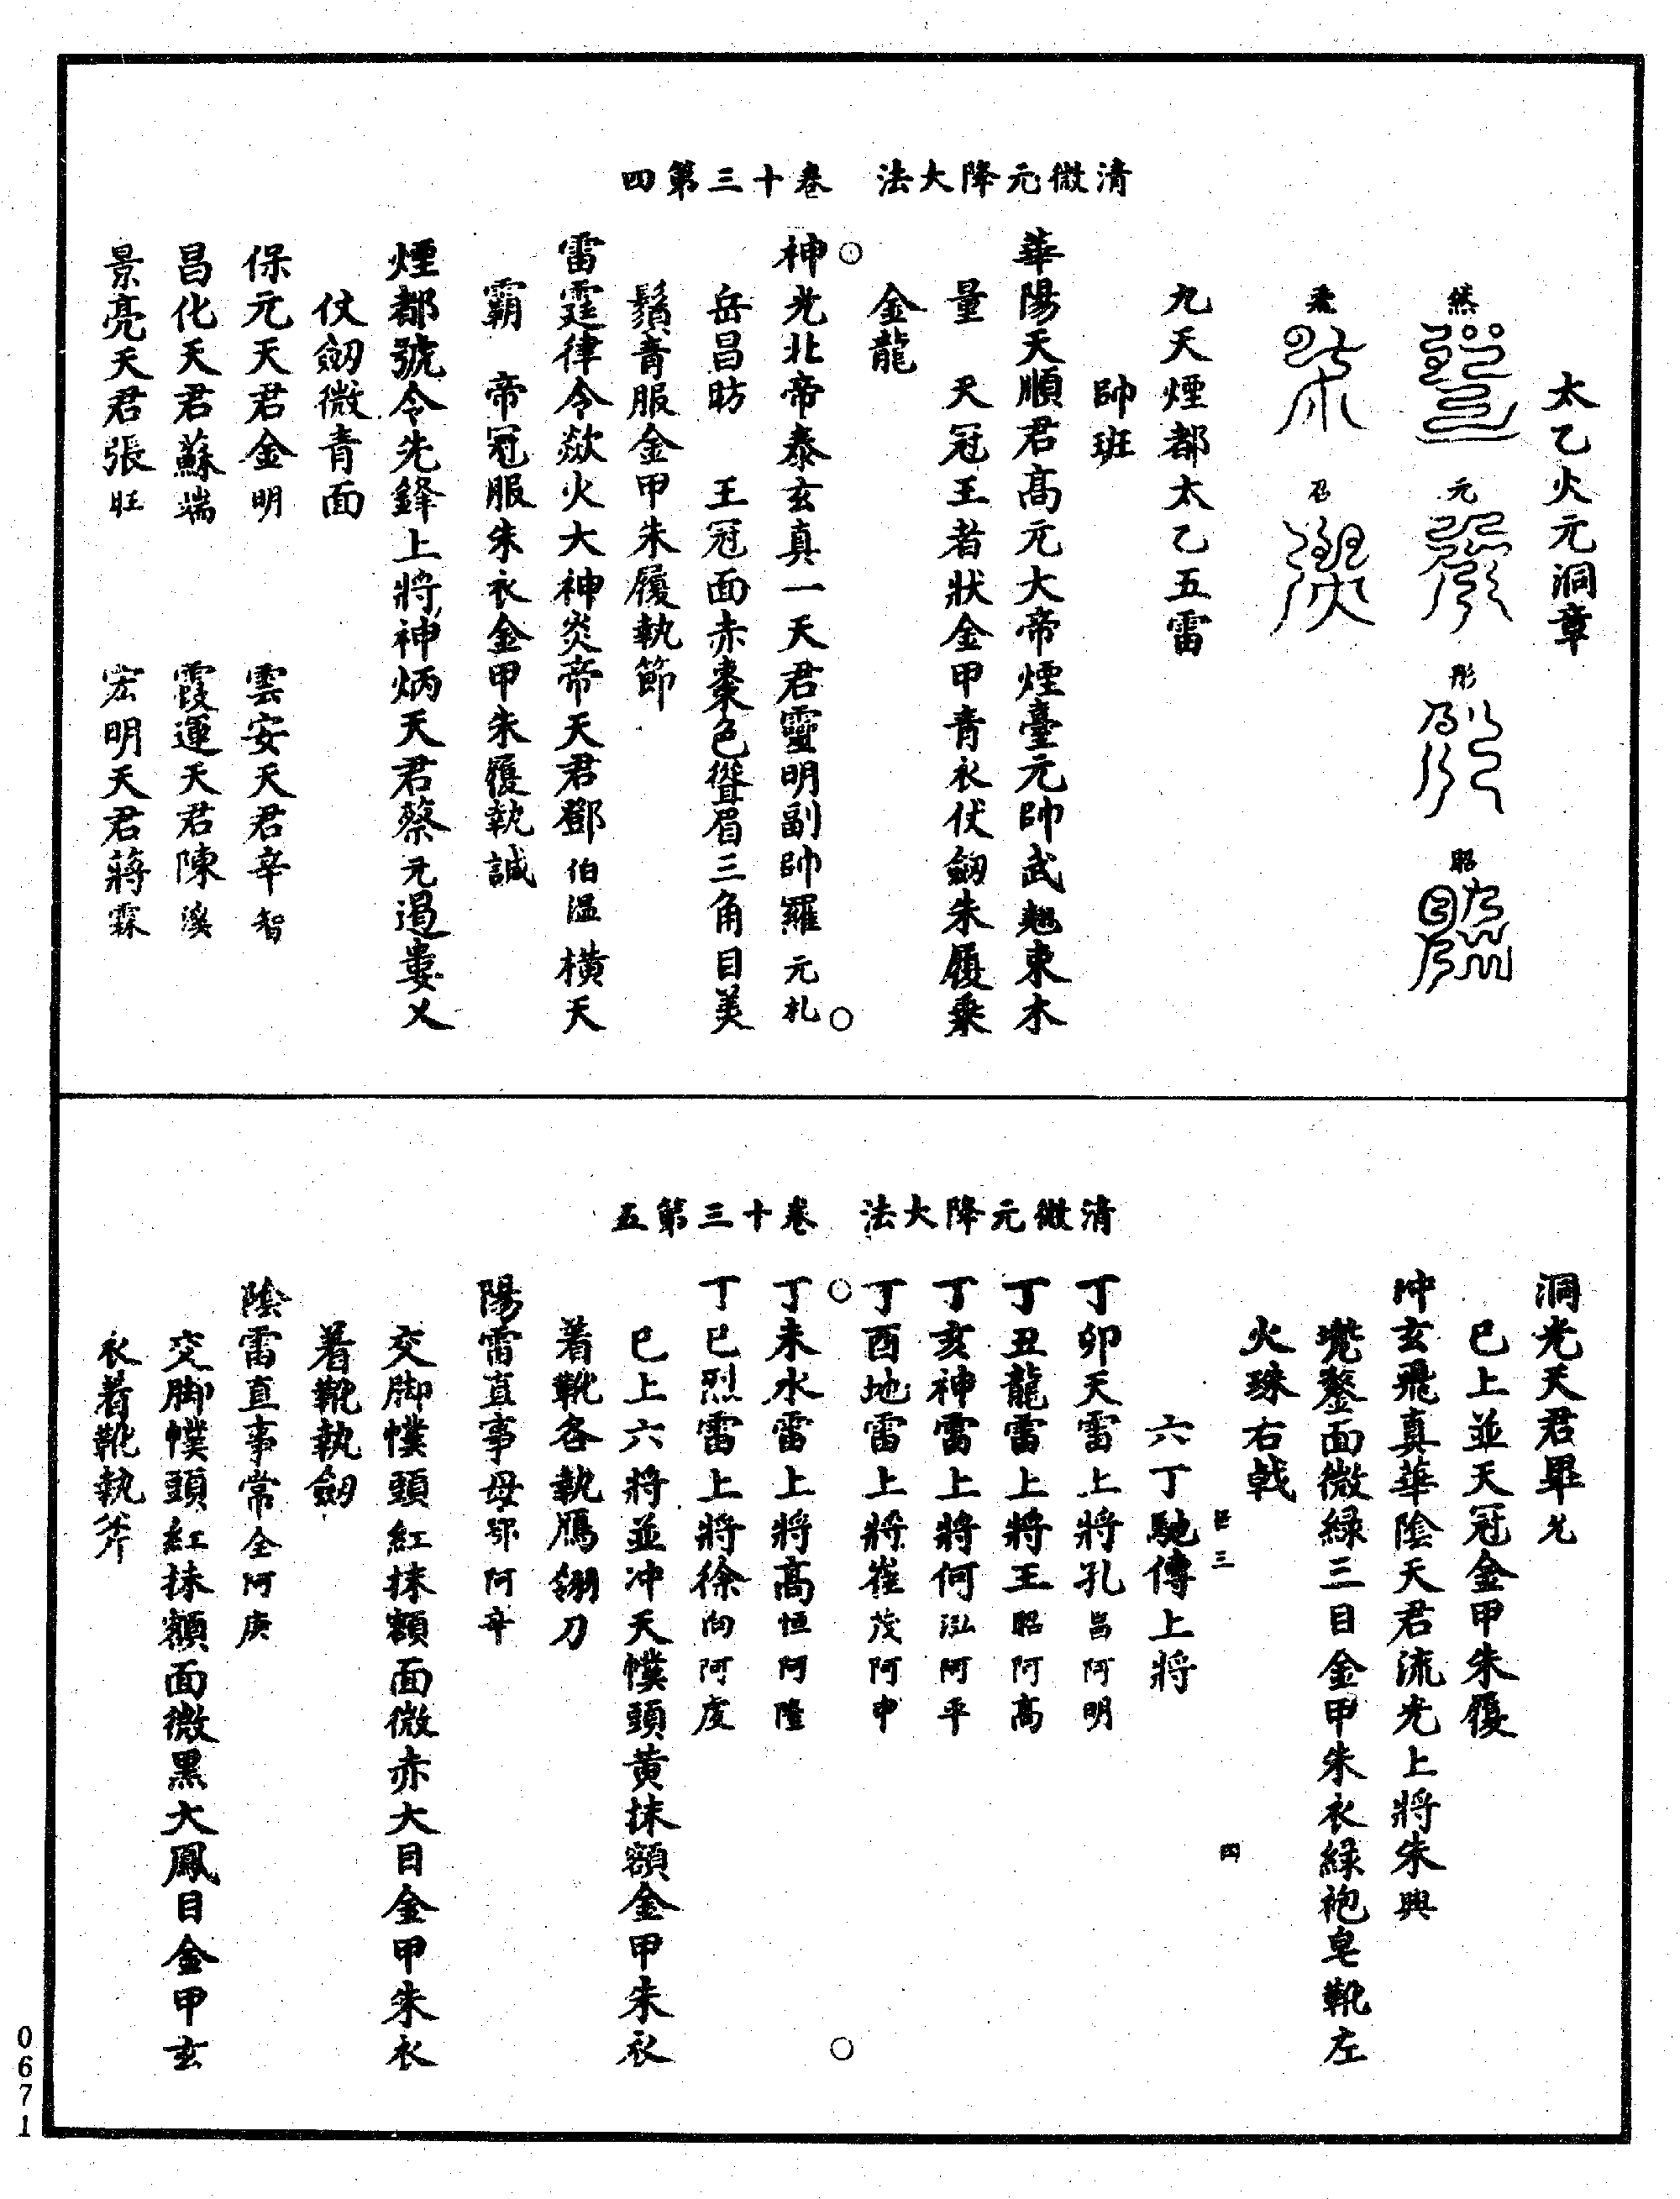 清微元降大法　卷十三第四
太乙火元洞章
然　元　彤　昭
飛　召
九天煙都太乙五雷
帥班
華陽天順君高元大帝煙臺元帥武魁東木
量　天冠王者狀金甲青衣仗劒朱履乘
金龍
神光北帝泰玄真一天君靈明副帥羅元札
岳昌昉　王冠面赤棗色聳眉三角目美
鬚青服金甲朱履執節
雷霆律令欻火大神炎帝天君鄧伯溫橫天
霸　帝冠服朱衣金甲朱履執誠
煙都號令先鋒上將神炳天君蔡元遏婁乂
仗劒微青面
保元天君金明　雲安天君辛智
昌化天君蘇端　霞運天君陳溪
景亮天君張旺　宏明天君蔣霖
清微元降大法　卷十三第五
洞光天君畢允
已上並天冠金甲朱履
冲玄飛真華陰天君流光上將朱興
兜鍪面微緑三目金甲朱衣緑袍皂靴左
火珠右戟
三　四
六丁馳傳上將
丁卯天雷上將孔昌阿明
丁丑龍雷上將王昭阿高
丁亥神雷上將何泓阿平
丁酉地雷上將崔茂阿申
丁未水雷上將高恒阿隆
丁巳烈雷上將徐向阿度
已上六將並冲天幞頭黄抹額金甲朱衣
着靴各執鴈翎刀
陽雷直事母鄂阿辛
交脚幞頭紅抹額面微赤大目金甲朱衣
着靴執劒
陰雷直事常全阿庚
交脚幞頭紅抹額面微黑大鳳目金甲玄
衣着靴執斧
0671